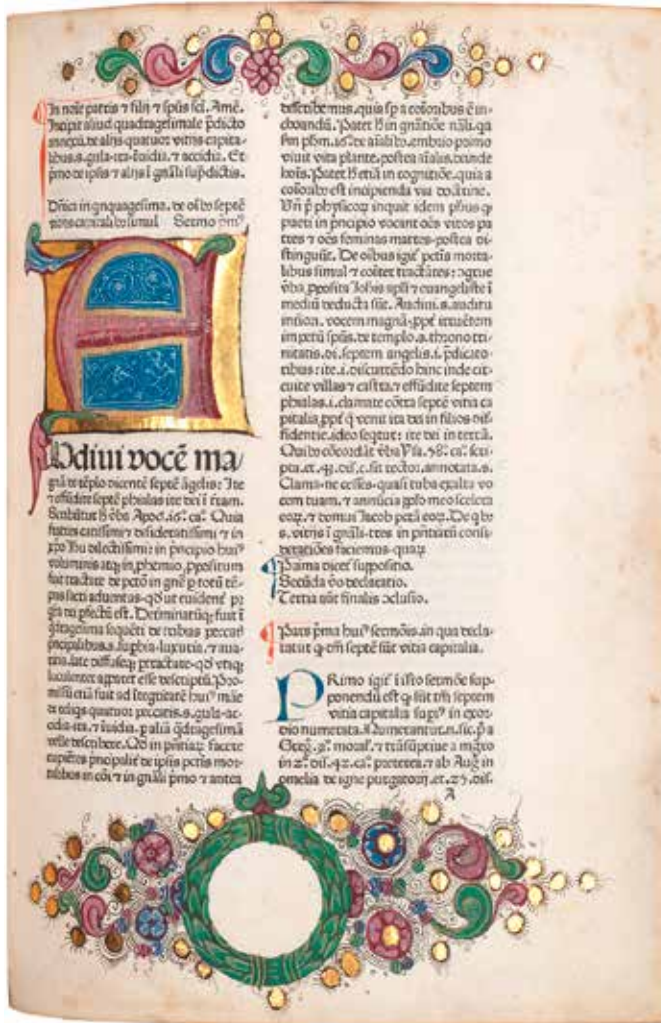 In noie patris ⁊ filij ⁊ spũs scĩ. Amē.
Incipit aliud quadragesimale p̄dicto
annexũ. de alijs quatuor vitijs capita-
libus. s. gula-ira-inuidia. ⁊ accidia. Et
pͥmo de ipsis ⁊ alijs ĩ gñali sup̄dictis.
Dñica in qnquagesima. de oĩbꝰ septē
vitijs capitalibꝰ simul Sermo pmꝰ
A
Vdiui vocē ma/
gnā de tēplo dicentē septē āgelis: Ite
⁊ effūdite septē phialas ire dei ĩ tr̄am.
Scribũtur ħ v̄ba Apoc̄.16. ca°. Quia
fratres carissimi ⁊ desideratissimi ⁊ in
xp̄o Ihu dilectissimi: in principio huiꝰ
voluminis atqꝫ in, phemio, ppositum
fuit tractare de pctõ in gñe p totũ tē-
pus sacri aduentus-qd̕ ut euidenť p
gra dei pfectũ est. Determinatũqꝫ fuit ĩ
q̄dragesima sequēti de tribus peccatꝭ
principalibus. s. supbia-luxuria, ⁊ aua-
ritia. late diffuseqꝫ pertractare-qd̕ vtiqꝫ
luculenter apparet esse descriptũ. Pro-
missũ etiã fuit ad ītegritatē huiꝰ māe
de reliqs quatuor peccatis. s. gula-ac-
cidia-ira. ⁊ ĩuidia. p aliã q̄dragesimã
velle describere. Qd̕ in pñtiaꝝ facere
cupiētes principalit̕ de ipsis pctĩs mor-
talibus in cõi ⁊ in gñali pͥmo ⁊ antea
describemus. quia sp a cõioribus ē in-
choandũ. Patet ħ in gñatiõe nãli. qa
fm phm. 16. de aĩalibꝰ. embrio primo
viuit vita plante. postea aĩalis. deinde
hoĩs. Patet ħ etiã in cognitiõe. quia a
cõioribꝰ est incipienda via doctrine.
Vñ pͥ physicoꝝ inquit idem phũs qꝫ
pueri in principio vocant oēs viros pa
tres ⁊ oēs feminas matres-postea di-
stinguũt. De oĩbus igit̕ pctĩs morta-
libus simul ⁊ cõiter tractãtes: ɔgrue
v̄ba, pposita Iohis apl̃i ⁊ euangeliste ĩ
mediũ deducta sũt. Audiui. s. auditu
interion. vocem magnã. ppť irruētem
impetũ spũs. de templo. s. throno tri-
nitatis. di. septem angelis. i. p̄dicato-
ribus: ite. i. discurrēdo hinc inde cir-
cuite villas ⁊ castra. ⁊ effũdite septem
phialas. i. clamate cõtra septē vitia ca
pitalia ppť q̄ venit ira dei in filios dif-
fidentie. ideo seqtur: ire dei in terrã.
Quibꝰ cõcordãt v̄ba Ysa. 58. ca°. scri-
pta. et. 43. dis. c. sit rector. annotata. s.
Clama-ne cesses-quasi tuba exalta vo
cem tuam. ⁊ annũcia pplo meo scelera
eoꝝ. ⁊ domus Iacob pctã eoꝝ. De qbꝰ
s. vitijs ĩ gñali-tres in pñtiarũ consi-
deratiões faciemus-quaꝝ
Prima dicet̕ suppositio.
Secũda v̄o declaratio.
Tertia aũt finalis ɔclusio.
Pars p̄ma huiꝰ sermõis. in qua decla-
ratur q tm̄ septē sũt vitia capitalia.
PRimo igit̕ ĩ isto sermõe sup-
ponendũ est qꝫ sũt tm̄ septem
vitia capitalia supiꝰ in exor-
dio numerata. Numerantur. n. sic. pͥ a
Greg. 3°. moral̕. ⁊ trãsũptiue a mgro
in 2°. dis. 42. ca°. preterea. ⁊ ab Aug̕ in
omelia de igne purgatorij. et. 25. dis.
A